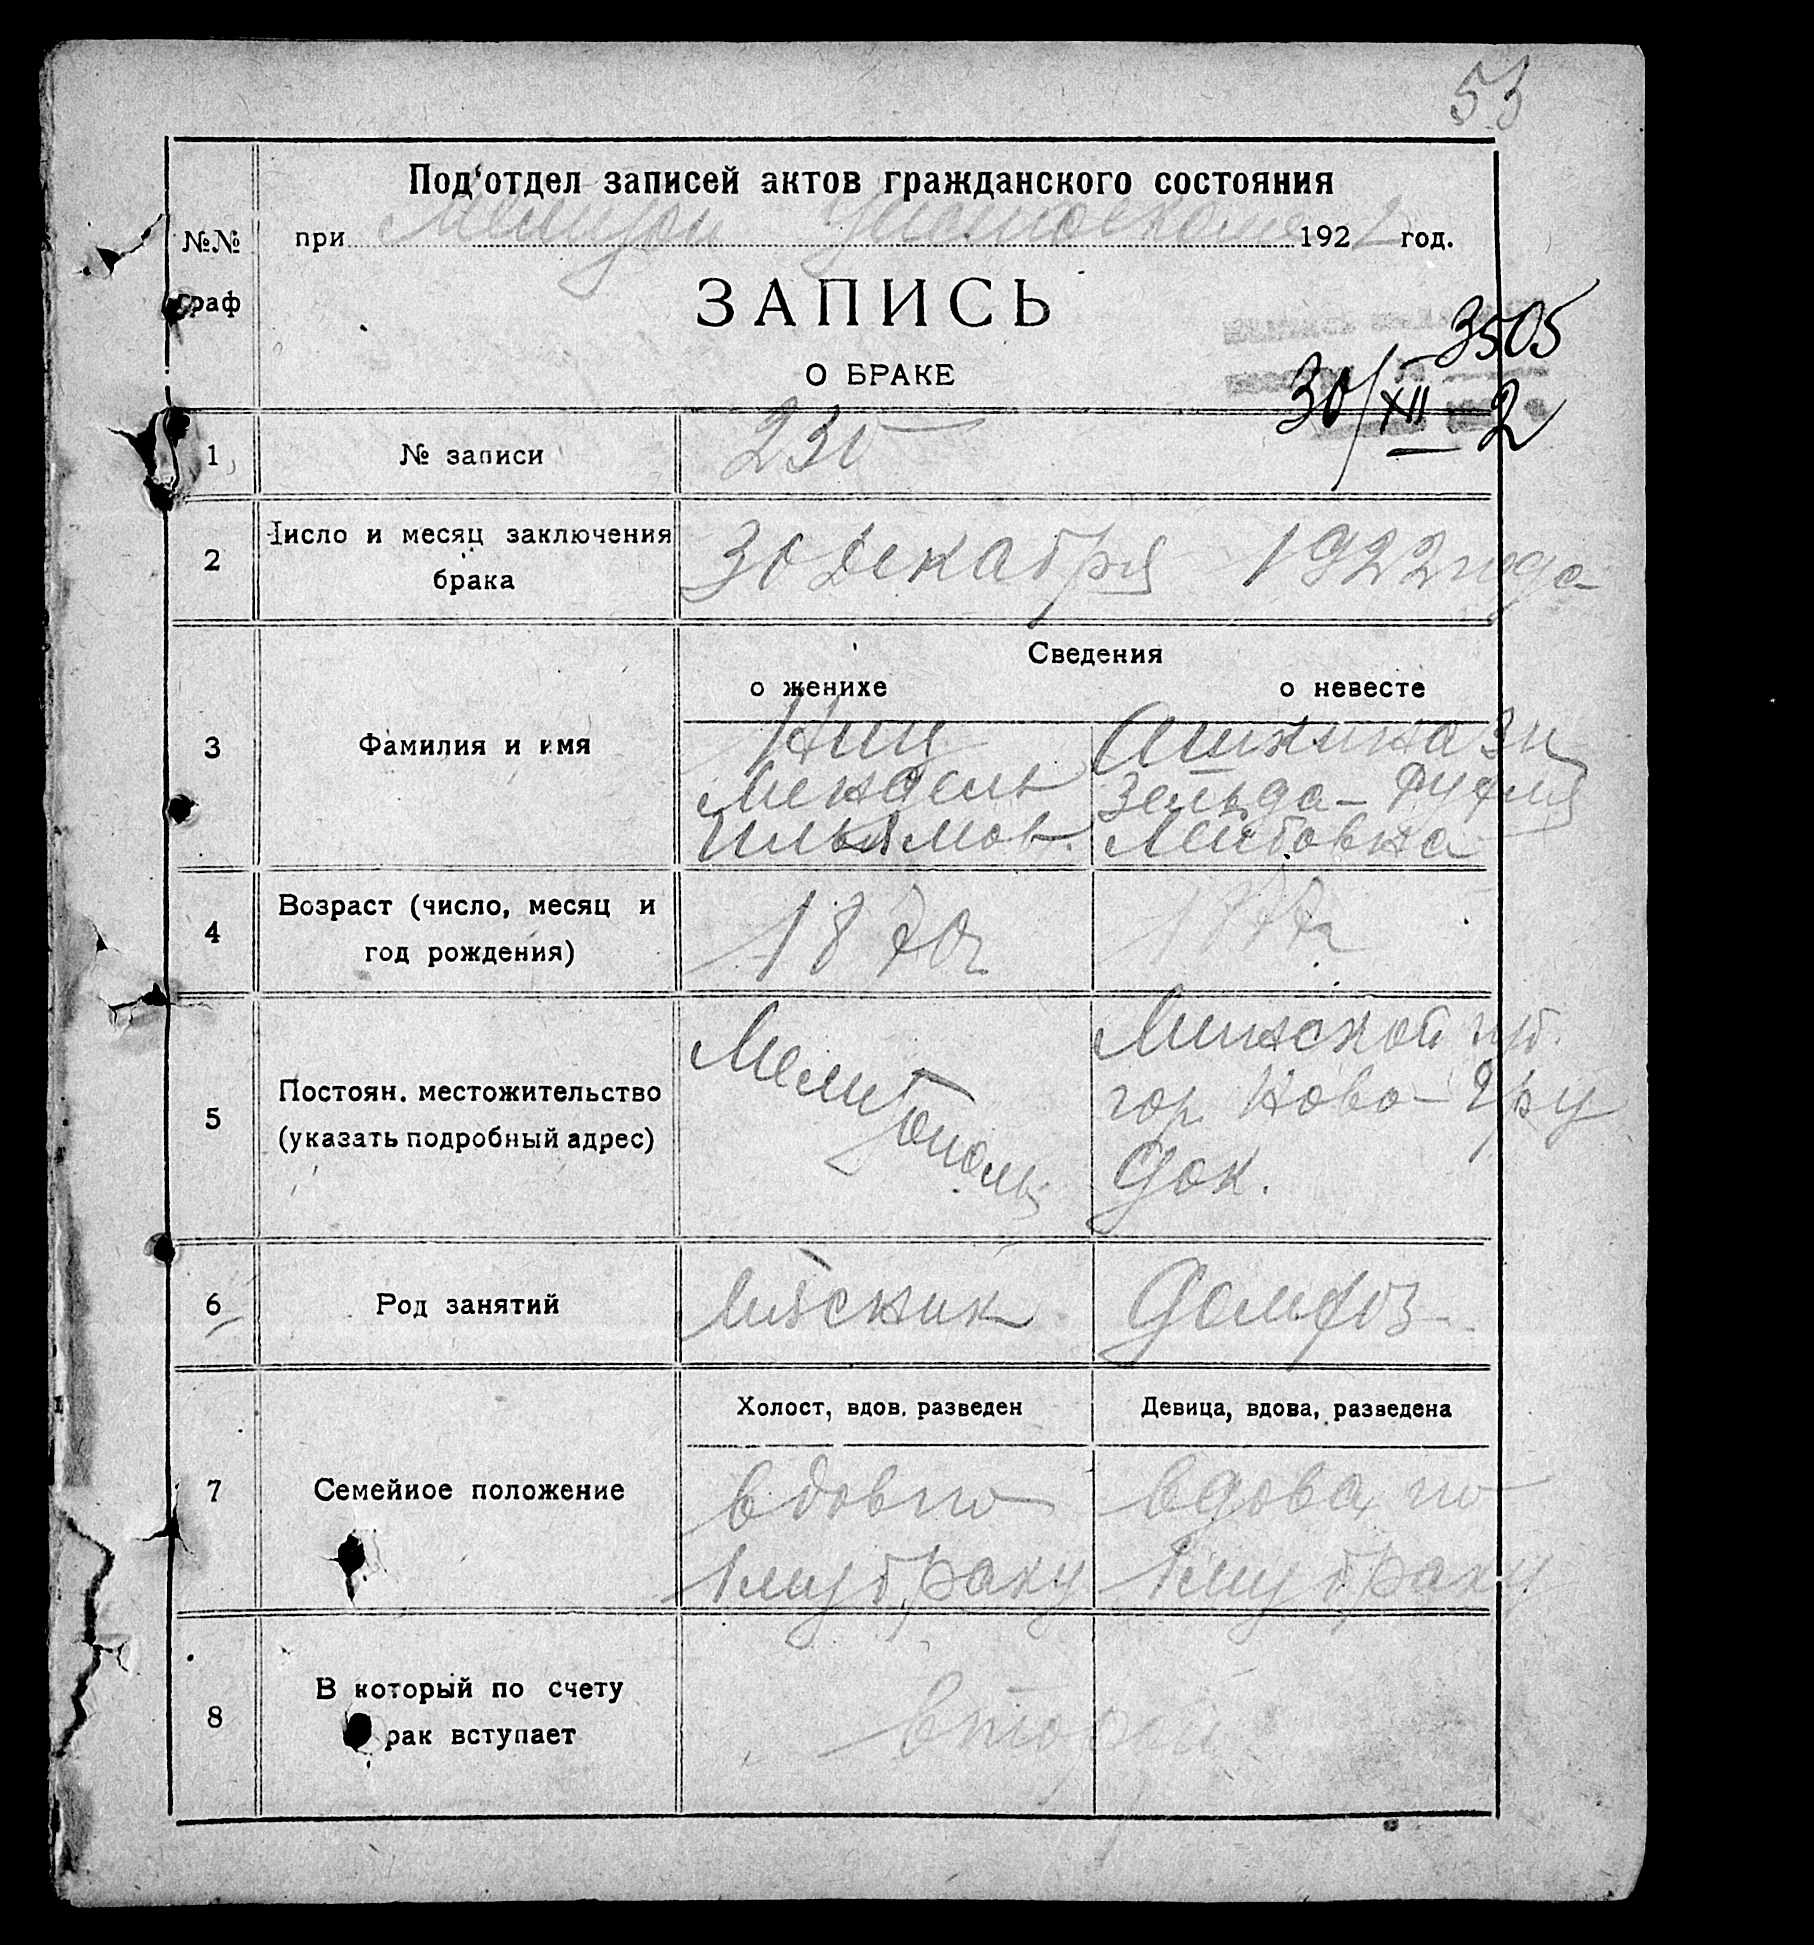 53
Под'отдел записей актов гражданского состояния
№№ граф
при Мелитоп 192 2 год.
ЗАПИСЬ
О БРАКЕ
3505
30/XII 2
1 № записи 230
2 Число и месяц заключения брака 30 Декабря 1922 года
Сведения
о женихе о невесте
3 Фамилия и имя
Ниц Ашкинази
Мендель Зельда-Руфля
Лейбовна
4 Возраст (число, месяц и год рождения) 1870г 1877г
5 Постоян. местожительство (указать подробный адрес)
Мелитополь
Минской губ.
гор Ново-Гру
док.
6 Род занятий мясник Домхоз
Холост, вдов, разведен Девица, вдова, разведена
7 Семейное положение
вдов по вдова по
1му браку 1му браку
8 В который по счету рак вступает второй